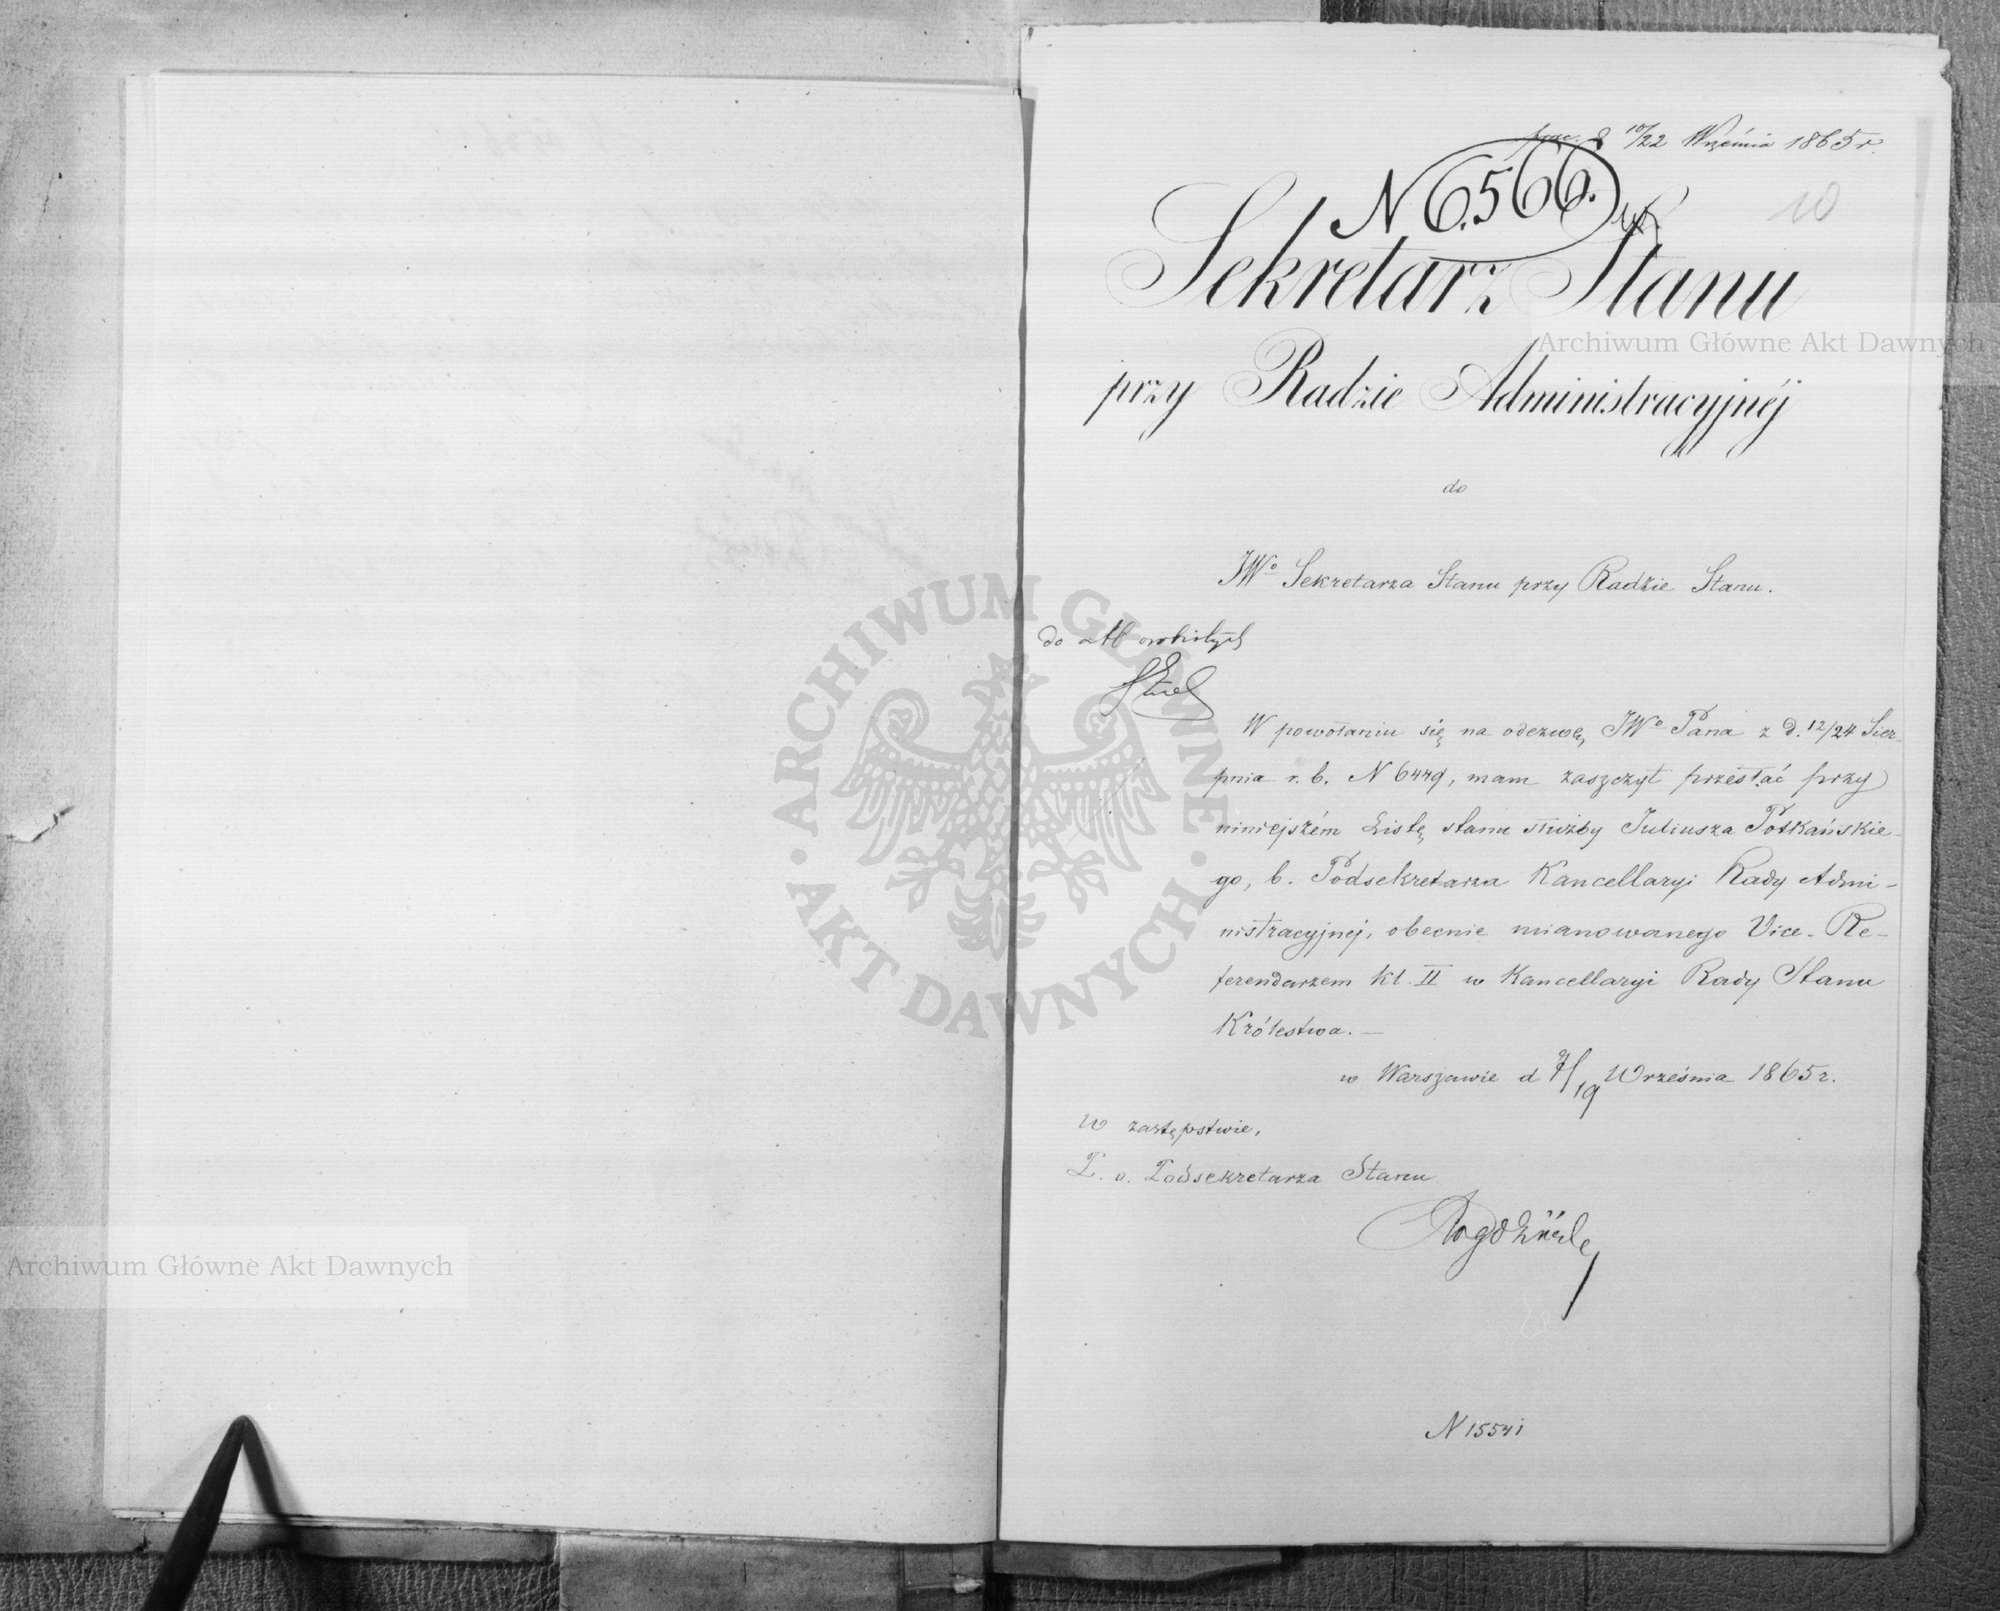 10/22 Września 1865 r.
N 6566.
10
Sekretarz Stanu
przy Radzie Administracyjnéj
do
JWo Sekretarza Stanu przy Radzie Stanu.
do akt osobistych
W powołaniu się na odezwę JWo Pana z d. 12/24 Sier-
pnia r. b. N 6449, mam zaszczyt przesłać przy
niniejszém Listę stanu służby Juliusza Potkańskie-
go, b. Podsekretarza Kancellaryi Rady Admi-
nistracyjnej, obecnie mianowanego Vice-Re-
ferendarzem kl. II w Kancellaryi Rady Stanu
Królestwa. —
w Warszawie d 7/19 Września 1865 r.
w zastępstwie,
P. o. Podsekretarza Stanu
N 15541
Archiwum Główne Akt Dawnych
Archiwum Główne Akt Dawnych
ARCHIWUM GŁÓWNE
AKT DAWNYCH